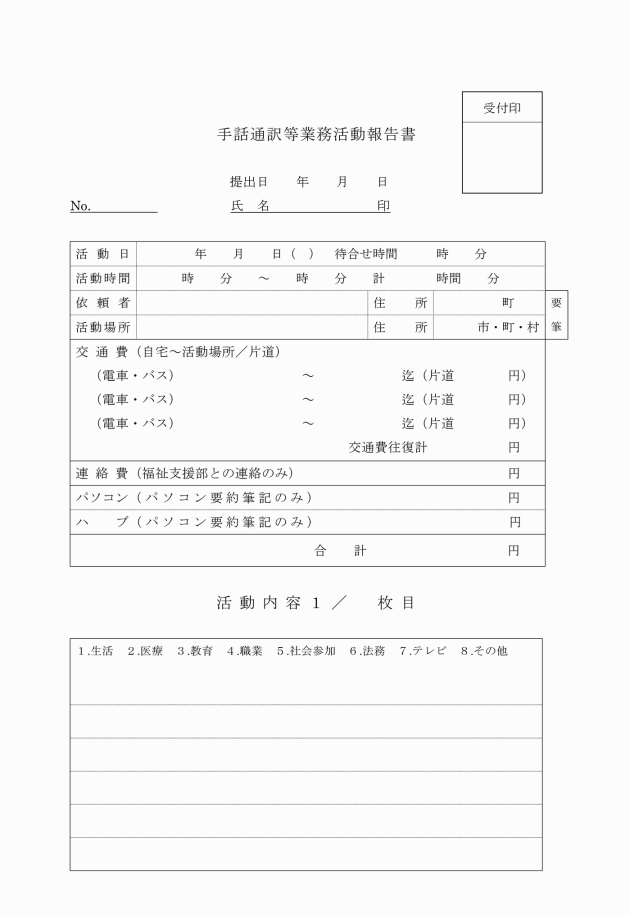 受付印
手話通訳等業務活動報告書
提出日　　年　　月　　日
No.　　　　　氏　名　　　　　　　　印
活　動　日　　　　年　　月　　日（　）　待合せ時間　　　時　　分
活動時間　　　時　　分　～　時　　分　計　　　　時間　　分
依　頼　者　　　　　住　　所　　　　　町　　要
活動場所　　　　　住　　所　　　市・町・村　　筆
交　通　費（自宅～活動場所／片道）
（電車・バス）　　　　　～　　　　　迄（片道　　　　円）
（電車・バス）　　　　　～　　　　　迄（片道　　　　円）
（電車・バス）　　　　　～　　　　　迄（片道　　　　円）
交通費往復計　　　　　円
連　絡　費（福祉支援部との連絡のみ）　　　　　円
パソコン（パソコン要約筆記のみ）　　　　　円
ハ　　ブ（パソコン要約筆記のみ）　　　　　円
合　　計　　　　　円
活動内容１／　　枚目
１.生活　２.医療　３.教育　４.職業　５.社会参加　６.法務　７.テレビ　８.その他